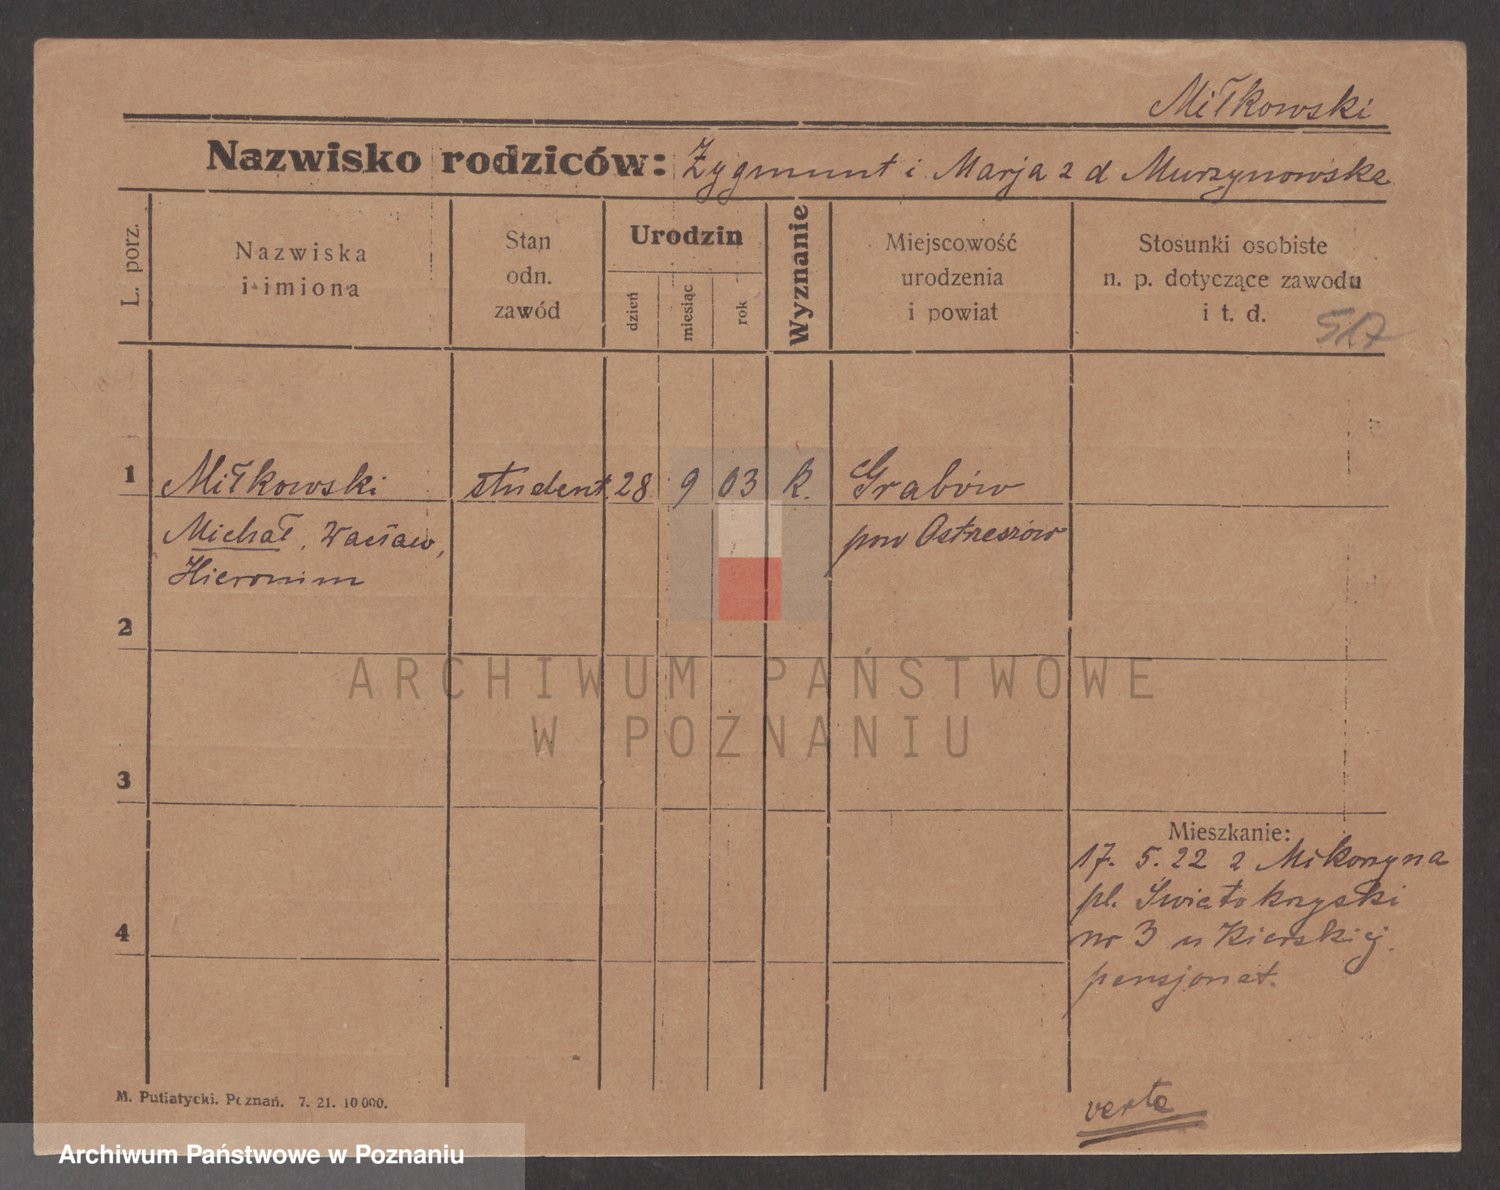 Miłkowski
Nazwisko rodziców: Zygmunt i Marja z d Murzynowska
L. porz.
Nazwiska
i imiona
Stan
odn.
zawód
Urodzin
dzień
miesiąc
rok
Wyznanie
Miejscowość
urodzenia
i powiat
Stosunki osobiste
n. p. dotyczące zawodu
i t. d.
517
1 Miłkowski student 28 9 03 k. Grabów
Michał, Wacław, pow Ostrzeszów
Hieronim
2
ARCHIWUM PAŃSTWOWE
W POZNANIU
3
Mieszkanie:
17. 5. 22 z Mikorzyna
pl. Świętokrzyski
4
nr 3 u Kierskiej
pensjonat.
verte
M. Putiatycki. Poznań. 7. 21. 10 000.
Archiwum Państwowe w Poznaniu